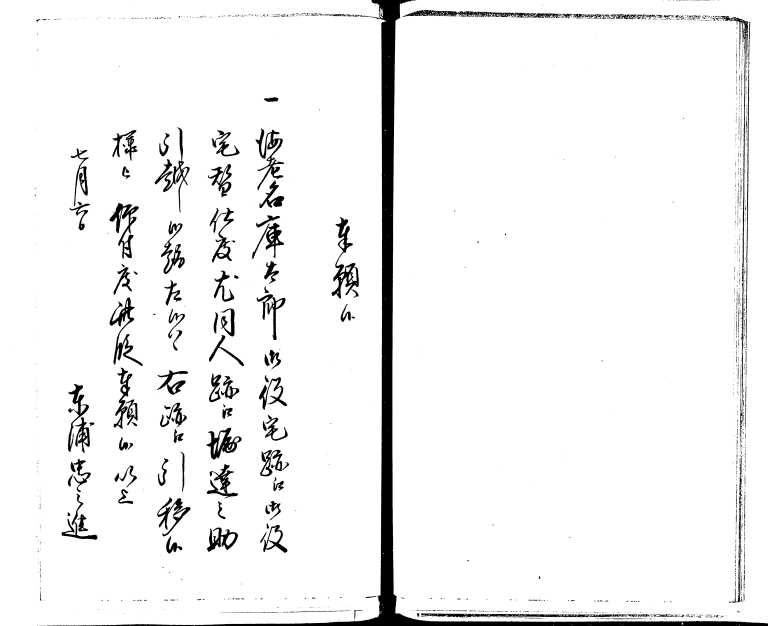 奉願候
一 海老名庫太郎御役宅跡江御役
宅替仕度尤同人跡江堀達之助
引越候節右跡江引移候
様被仰付度此段奉願候以上
七月六日
東浦忠之進